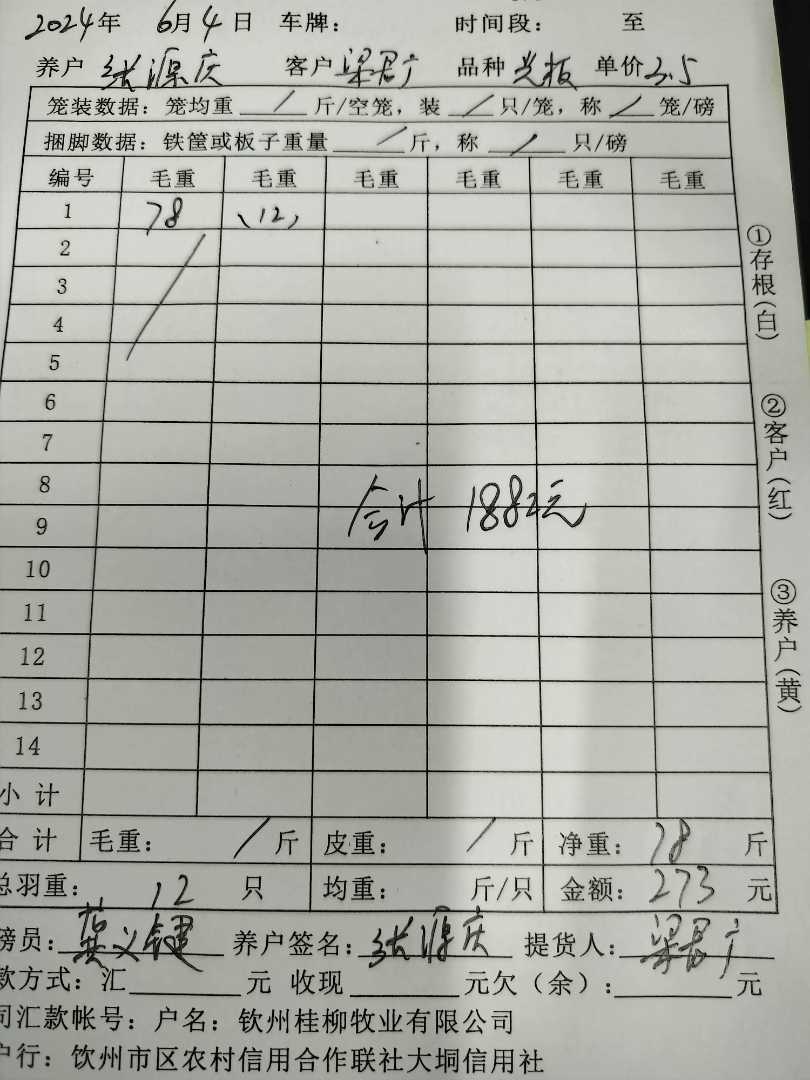 2024年 6月4日 车牌: 时间段: 至
养户 张源庆 客户 梁君广 品种 光板 单价 3.5
笼装数据: 笼均重 / 斤/空笼, 装 / 只/笼, 称 / 笼/磅
捆脚数据: 铁筐或板子重量 / 斤, 称 / 只/磅
编号 毛重 毛重 毛重 毛重 毛重 毛重
1 78 12
2
3
4
5
6
7
8
合计 1882元
9
10
11
12
13
14
小计
合计 毛重: / 斤 皮重: / 斤 净重: 78 斤
总羽重: 12 只 均重: 斤/只 金额: 273 元
磅员: 龚义健 养户签名: 张源庆 提货人: 梁君广
款方式: 汇 元 收现 元欠(余): 元
司汇款帐号: 户名: 钦州桂柳牧业有限公司
户行: 钦州市区农村信用合作联社大垌信用社
①存根(白)
②客户(红)
③养户(黄)